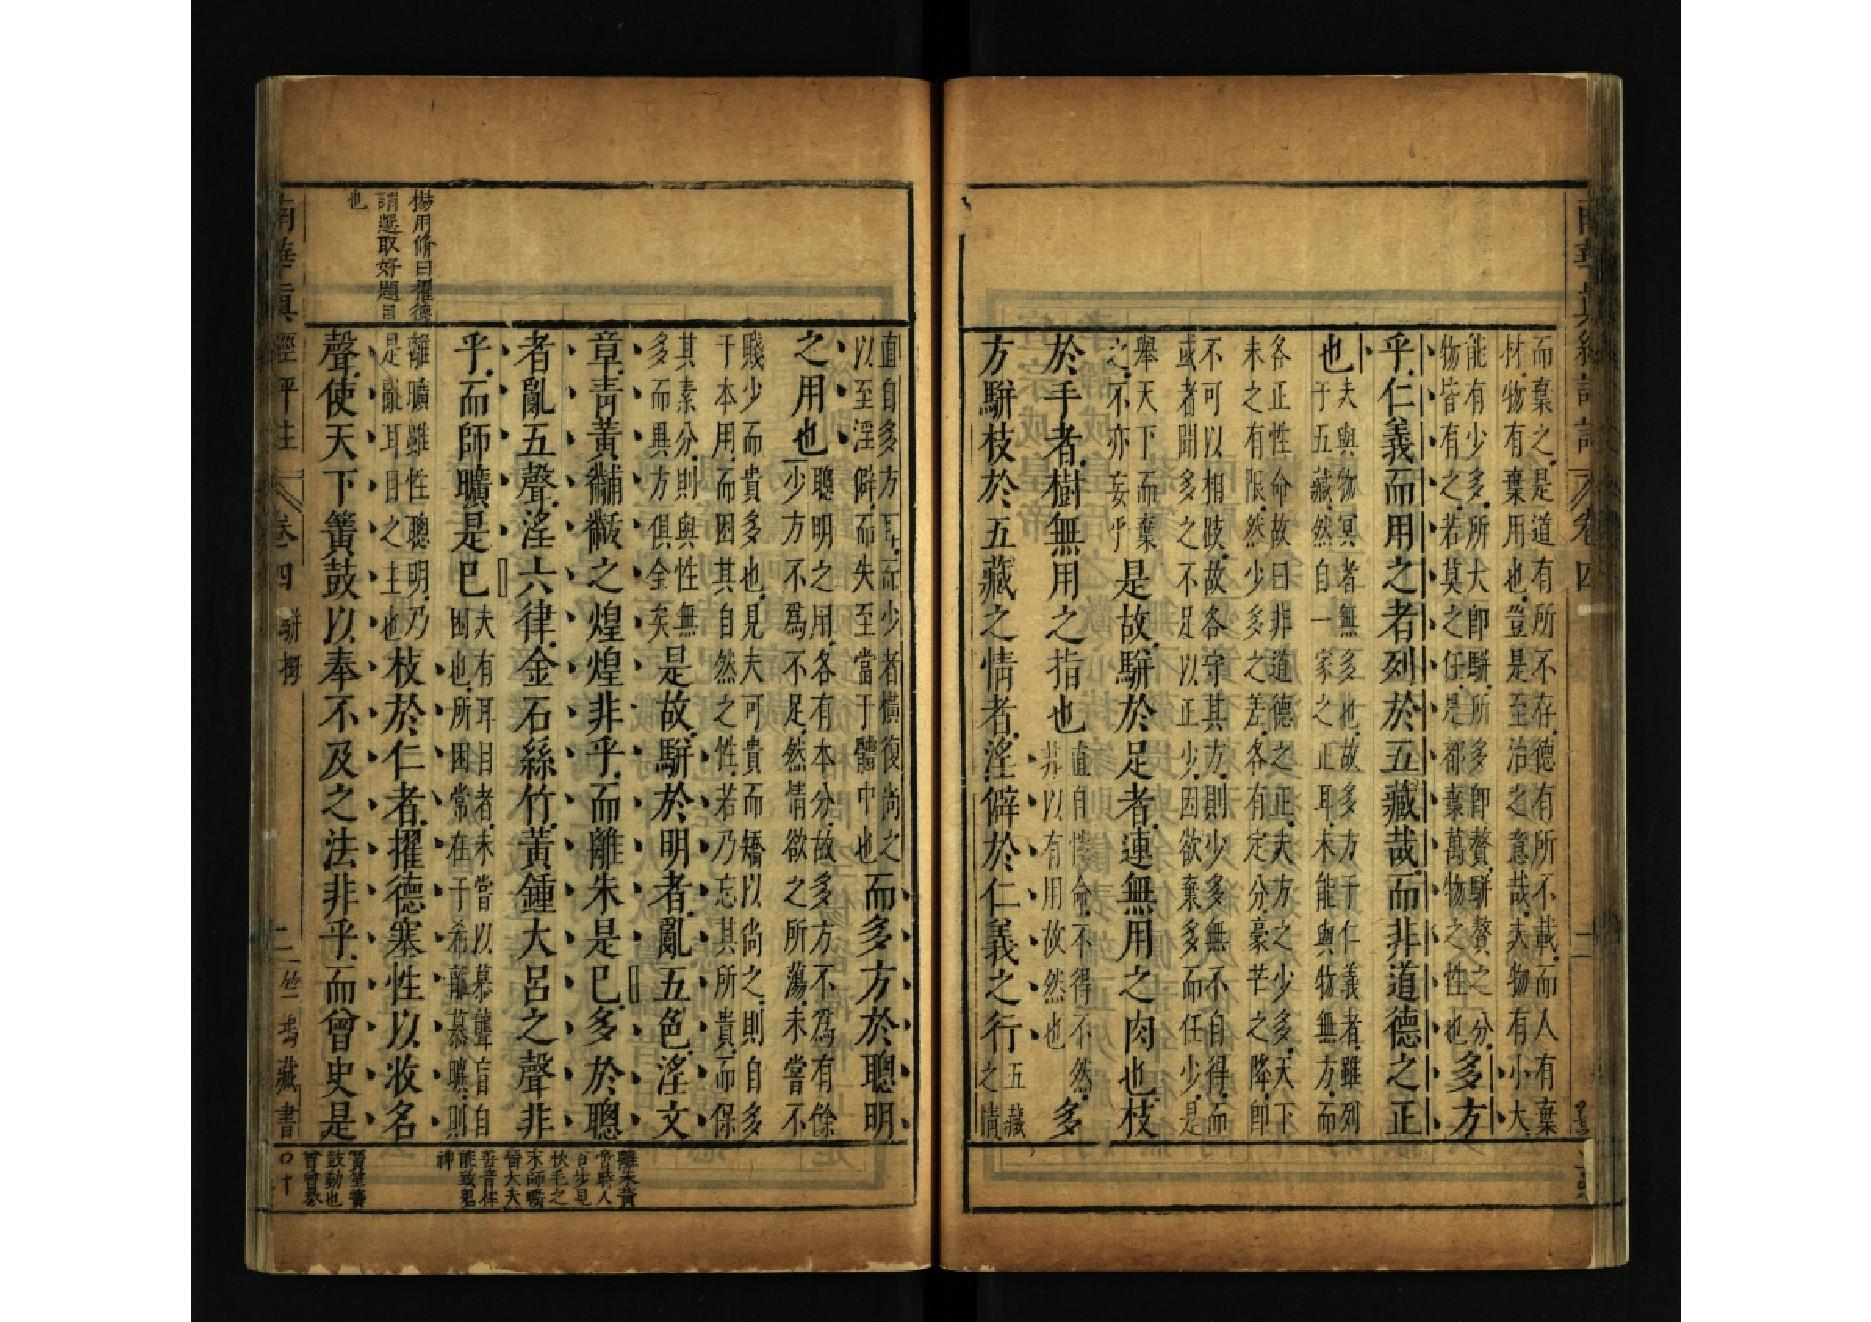 南華真經評註 卷四 二
而棄之是道有所不存德有所不載而人有棄
材物有棄用也豈是至治之意哉夫物有小大
能有少多所大即駢所多即贅駢贅之分
物皆有之若莫之任是都棄萬物之性也
多方
乎仁義而用之者列於五藏哉而非道德之正
也
夫與物冥者無多也故多方于仁義者雖列
于五藏然自一家之正耳未能與物無方而
各正性命故曰非道德之正夫方之少多天下
未之有限然少多之差各有定分豪芒之降即
不可以相跂故各守其方則少多無不自得而
或者聞多之不足以正少因欲棄多而任少是
舉天下而棄
之不亦妄乎
是故駢於足者連無用之肉也枝
於手者樹無用之指也
直自性命不得不然
非以有用故然也
多
方駢枝於五藏之情者淫僻於仁義之行
五藏
之情
直自多方耳而少者橫復尚之
以至淫僻而失至當于體中也
而多方於聰明
之用也
聰明之用各有本分故多方不為有餘
少方不為不足然情欲之所蕩未嘗不
賤少而貴多也見夫可貴而矯以尚之則自多
于本用而困其自然之性若乃忘其所貴而保
其素分則與性無
多而異方俱全矣
是故駢於明者亂五色淫文
章青黃黼黻之煌煌非乎而離朱是已多於聰
者亂五聲淫六律金石絲竹黃鍾大呂之聲非
乎而師曠是已
夫有耳目者未嘗以慕聾盲自
困也所困常在于希離慕曠則
離曠雖性聰明乃
是離耳目之主也
枝於仁者擢德塞性以收名
聲使天下簧鼓以奉不及之法非乎而曾史是
楊用脩曰擢德
謂選取好題目
也
離朱黃
帝時人
百步見
秋毛之
末師曠
晉大夫
善音律
能致鬼
神
簧笙簧
鼓動也
曾曾參
南華真經評註 卷四 駢拇 二 竺塢藏書